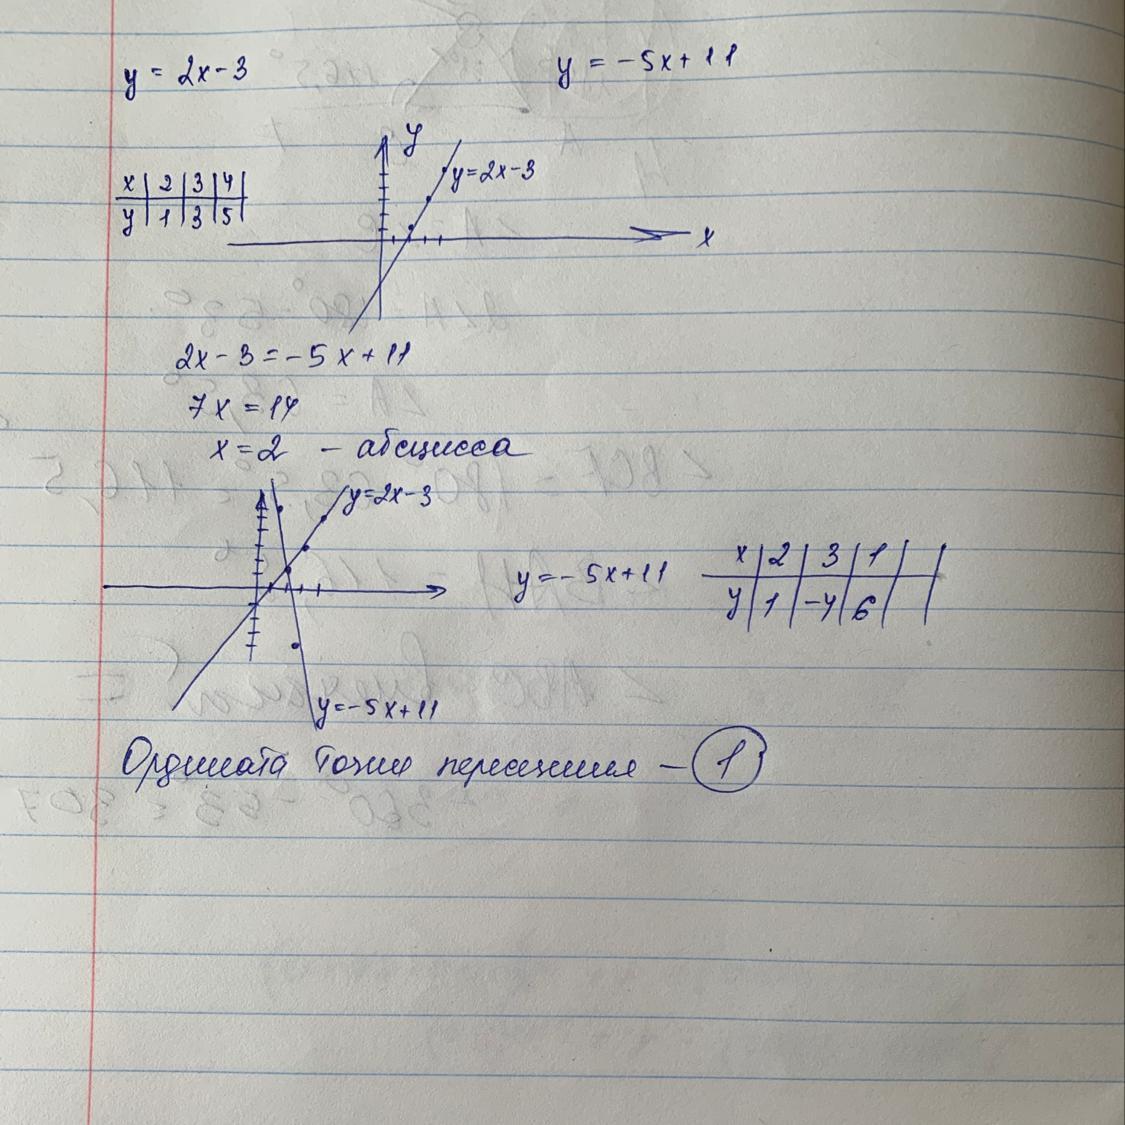 y = 2x - 3
y = -5x + 11
y
y=2x-3
x | 2 | 3 | 4 |
y | 1 | 3 | 5 |
x
2x - 3 = -5x + 11
7x = 14
x = 2 - абсцисса
y=2x-3
y = -5x+11
x | 2 | 3 | 1 |
y | 1 | -4 | 6 |
y=-5x+11
Ордината точки пересечения - 1